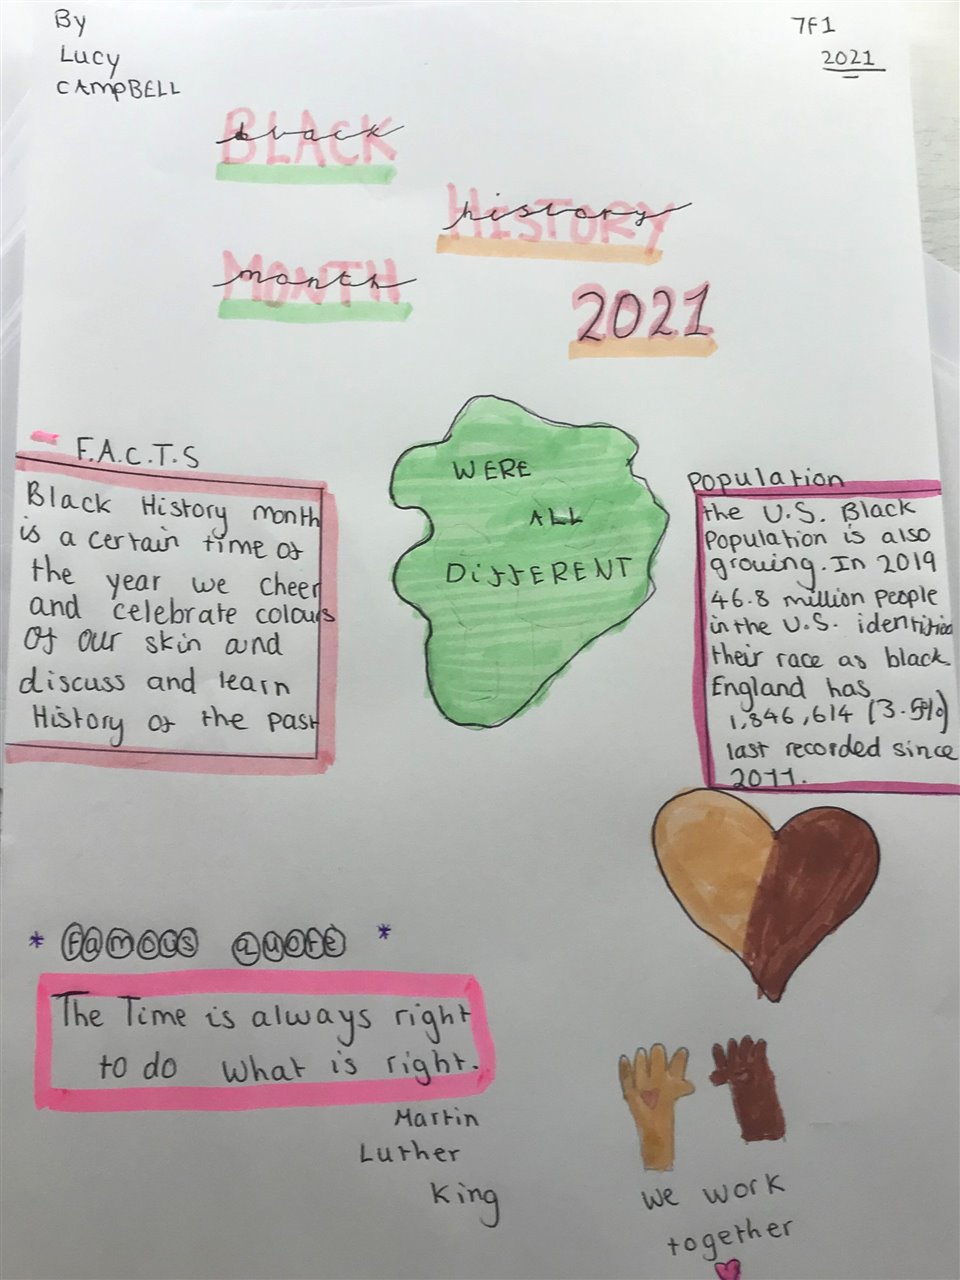 By
Lucy
CAMPBELL
7F1
2021
BLACK
black
HiSTORY
history
MONTH
month
2021
F.A.C.T.S
Black History month
is a certain time of
the year we cheer
and celebrate colours
Of our skin and
discuss and learn
History of the past
WERE
ALL
DiffERENT
Population
the U.S. Black
Population is also
growing. In 2019
46.8 million people
in the U.S. identified
their race as black
England has
1,846,614 (3.5%)
last recorded since
2011.
* Famous quote *
The Time is always right
to do what is right.
Martin
Luther
King
we work
together